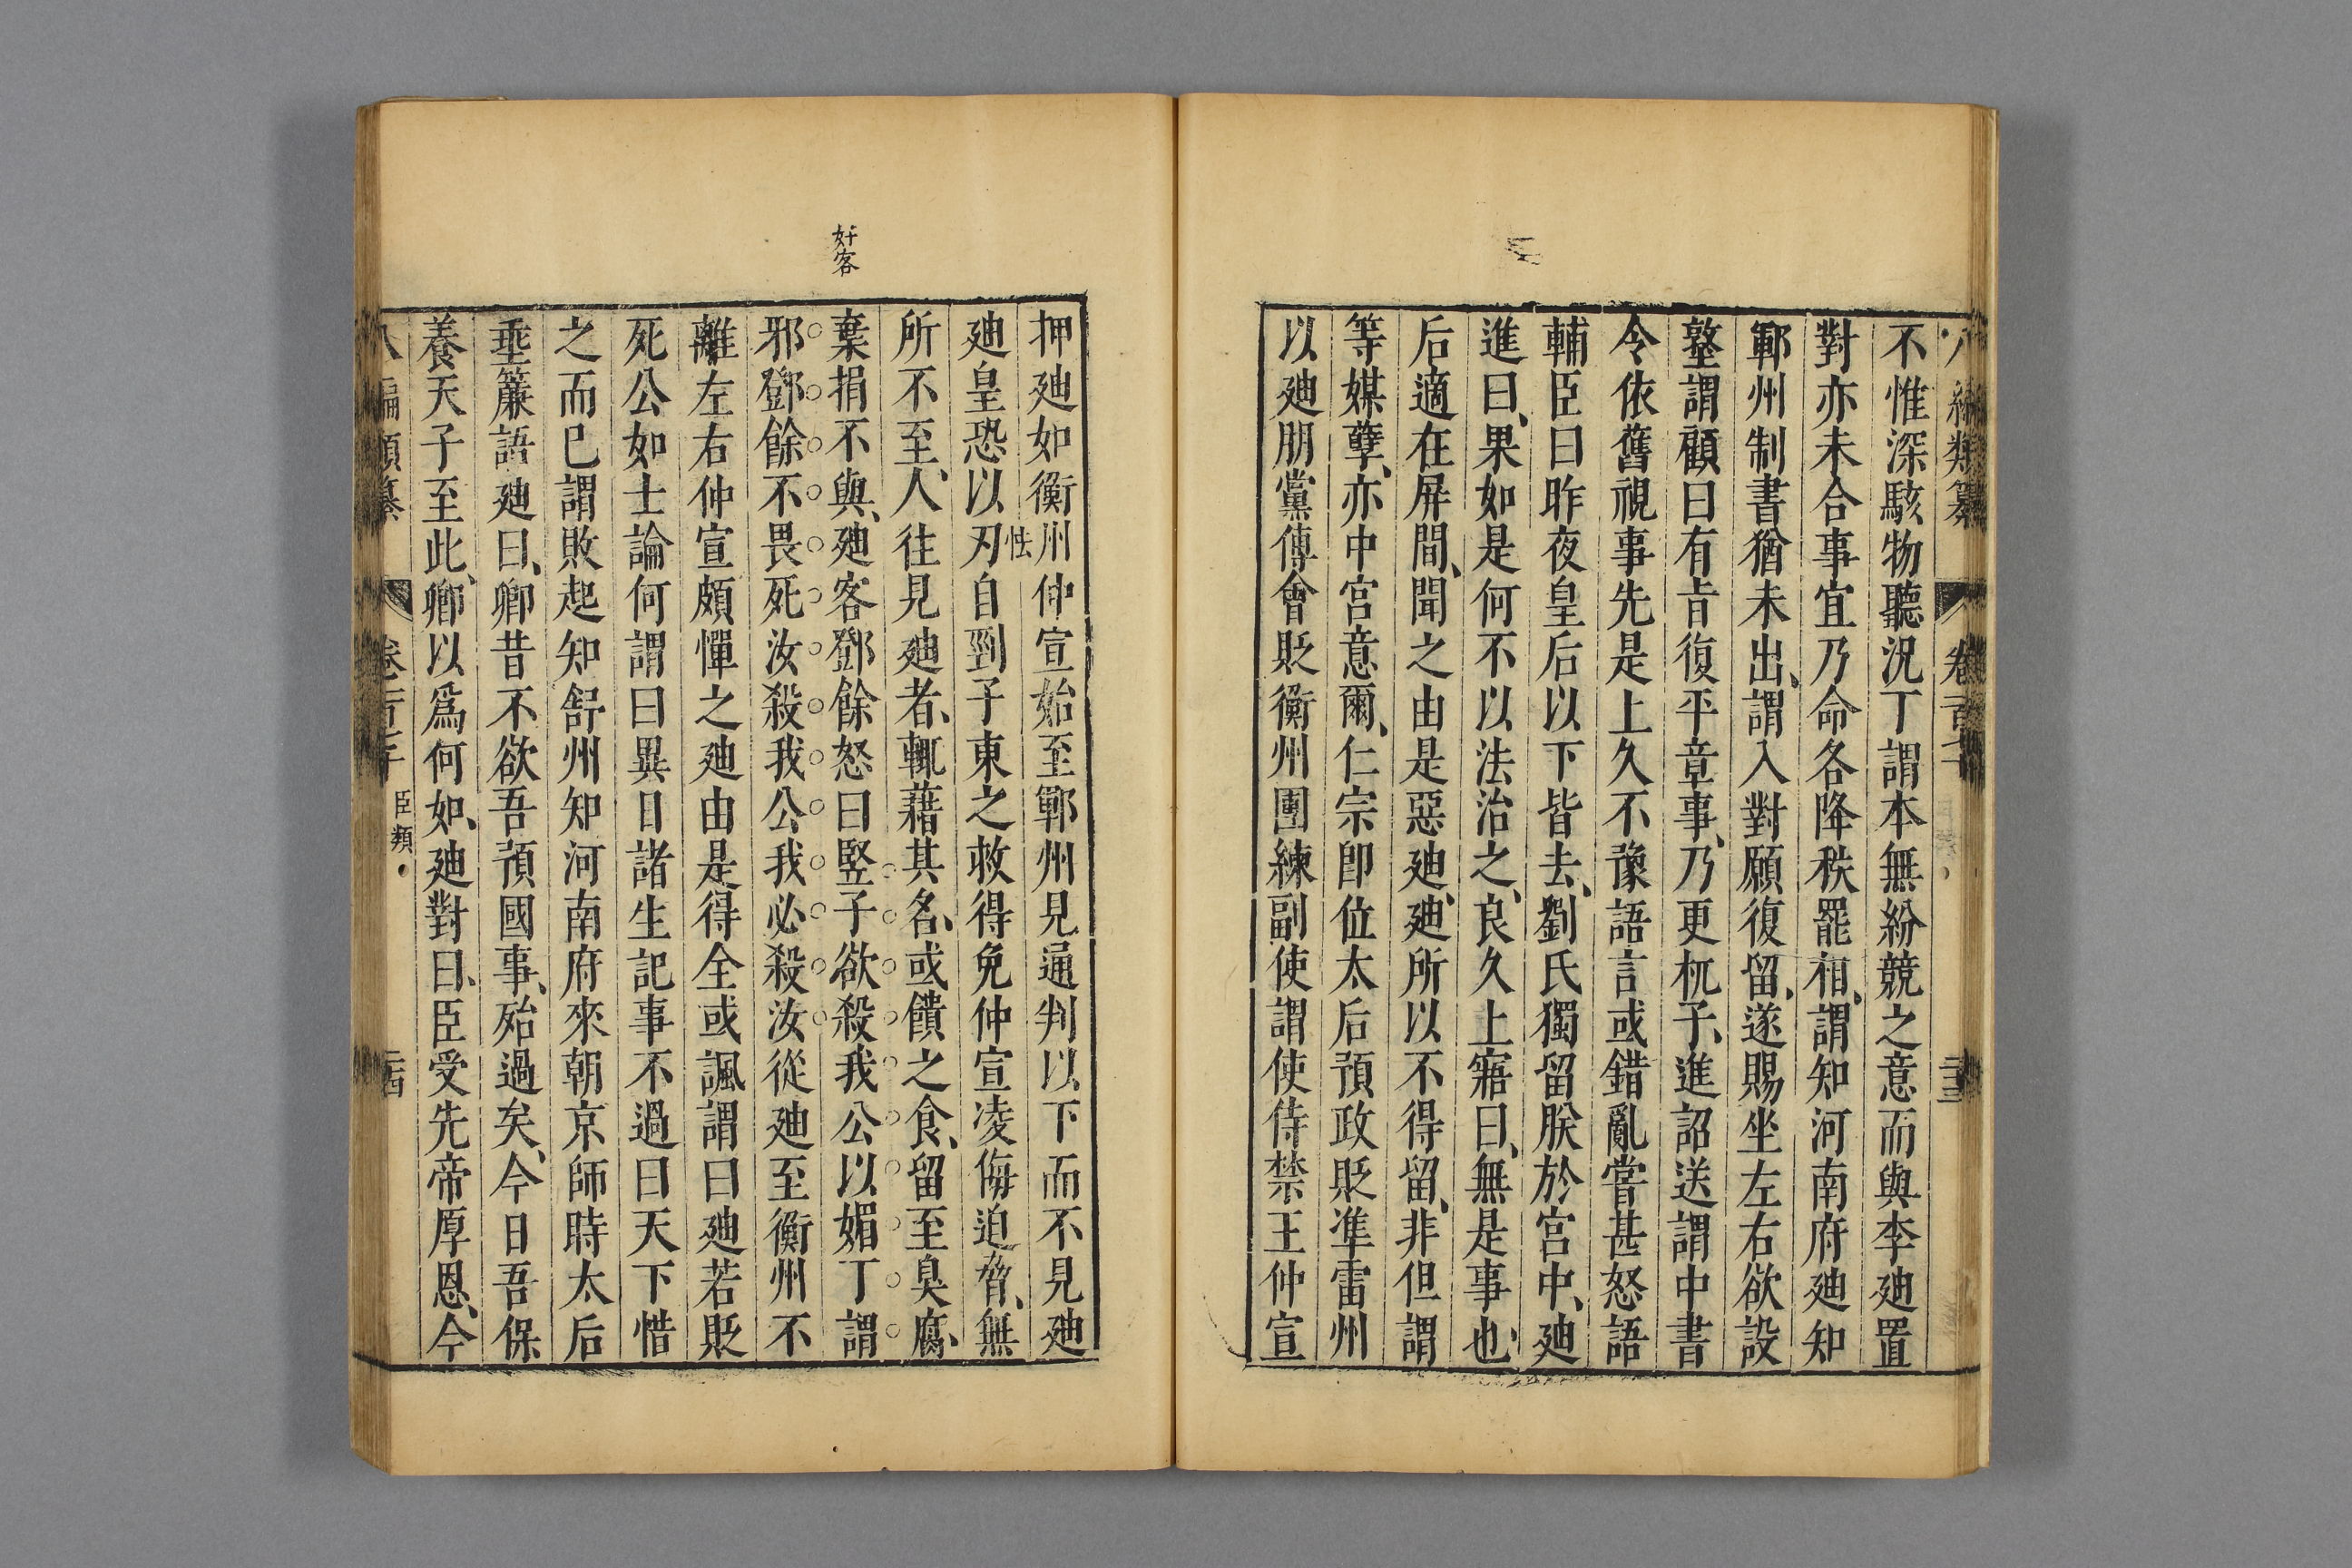 不惟深駭物聽況丁謂本無紛競之意而與李廸置
對亦未合事宜乃命各降秩罷相謂知河南府廸知
鄆州制書猶未出謂入對願復留遂賜坐左右欲設
墪謂顧曰有旨復平章事乃更杌子進詔送謂中書
令依舊視事先是上久不豫語言或錯亂嘗甚怒語
輔臣曰昨夜皇后以下皆去劉氏獨留朕於宮中廸
進曰果如是何不以法治之良久上寤曰無是事也
后適在屏間聞之由是惡廸廸所以不得留非但謂
等媒孽亦中宮意爾仁宗卽位太后預政貶準雷州
以廸朋黨傅會貶衡州團練副使謂使侍禁王仲宣
奸客
押廸如衡州仲宣始至鄆州見通判以下而不見廸
怯
廸皇恐以刃自剄子東之救得免仲宣凌侮迫脅無
所不至人往見廸者輒藉其名或饋之食留至臭腐
棄捐不與廸客鄧餘怒曰竪子欲殺我公以媚丁謂
邪鄧餘不畏死汝殺我公我必殺汝從廸至衡州不
離左右仲宣頗憚之廸由是得全或諷謂曰廸若貶
死公如士論何謂曰異日諸生記事不過曰天下惜
之而已謂敗起知舒州知河南府來朝京師時太后
垂簾語廸曰卿昔不欲吾預國事殆過矣今日吾保
養天子至此卿以爲何如廸對曰臣受先帝厚恩今
臣類